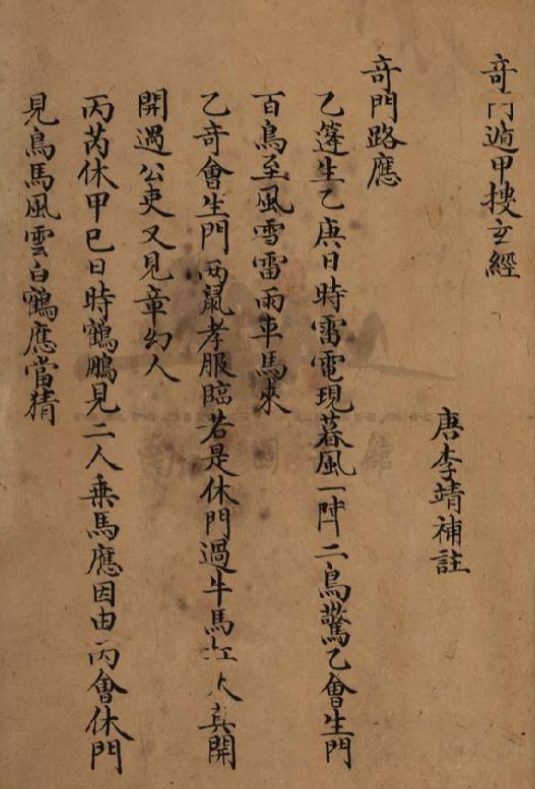 奇門遁甲搜玄經
唐李靖補註
奇門路應
乙蓬生乙庚日時雷電現暮風一陣二鳥驚乙會生門
百鳥至風雪雷雨車馬來
乙奇會生門兩鼠孝服臨若是休門過牛馬扛人其開
開遇公吏又見章幻人
丙芮休甲巳日時鶴鵬見二人乗馬應因由丙會休門
見鳥馬風雲白鶴應當猜